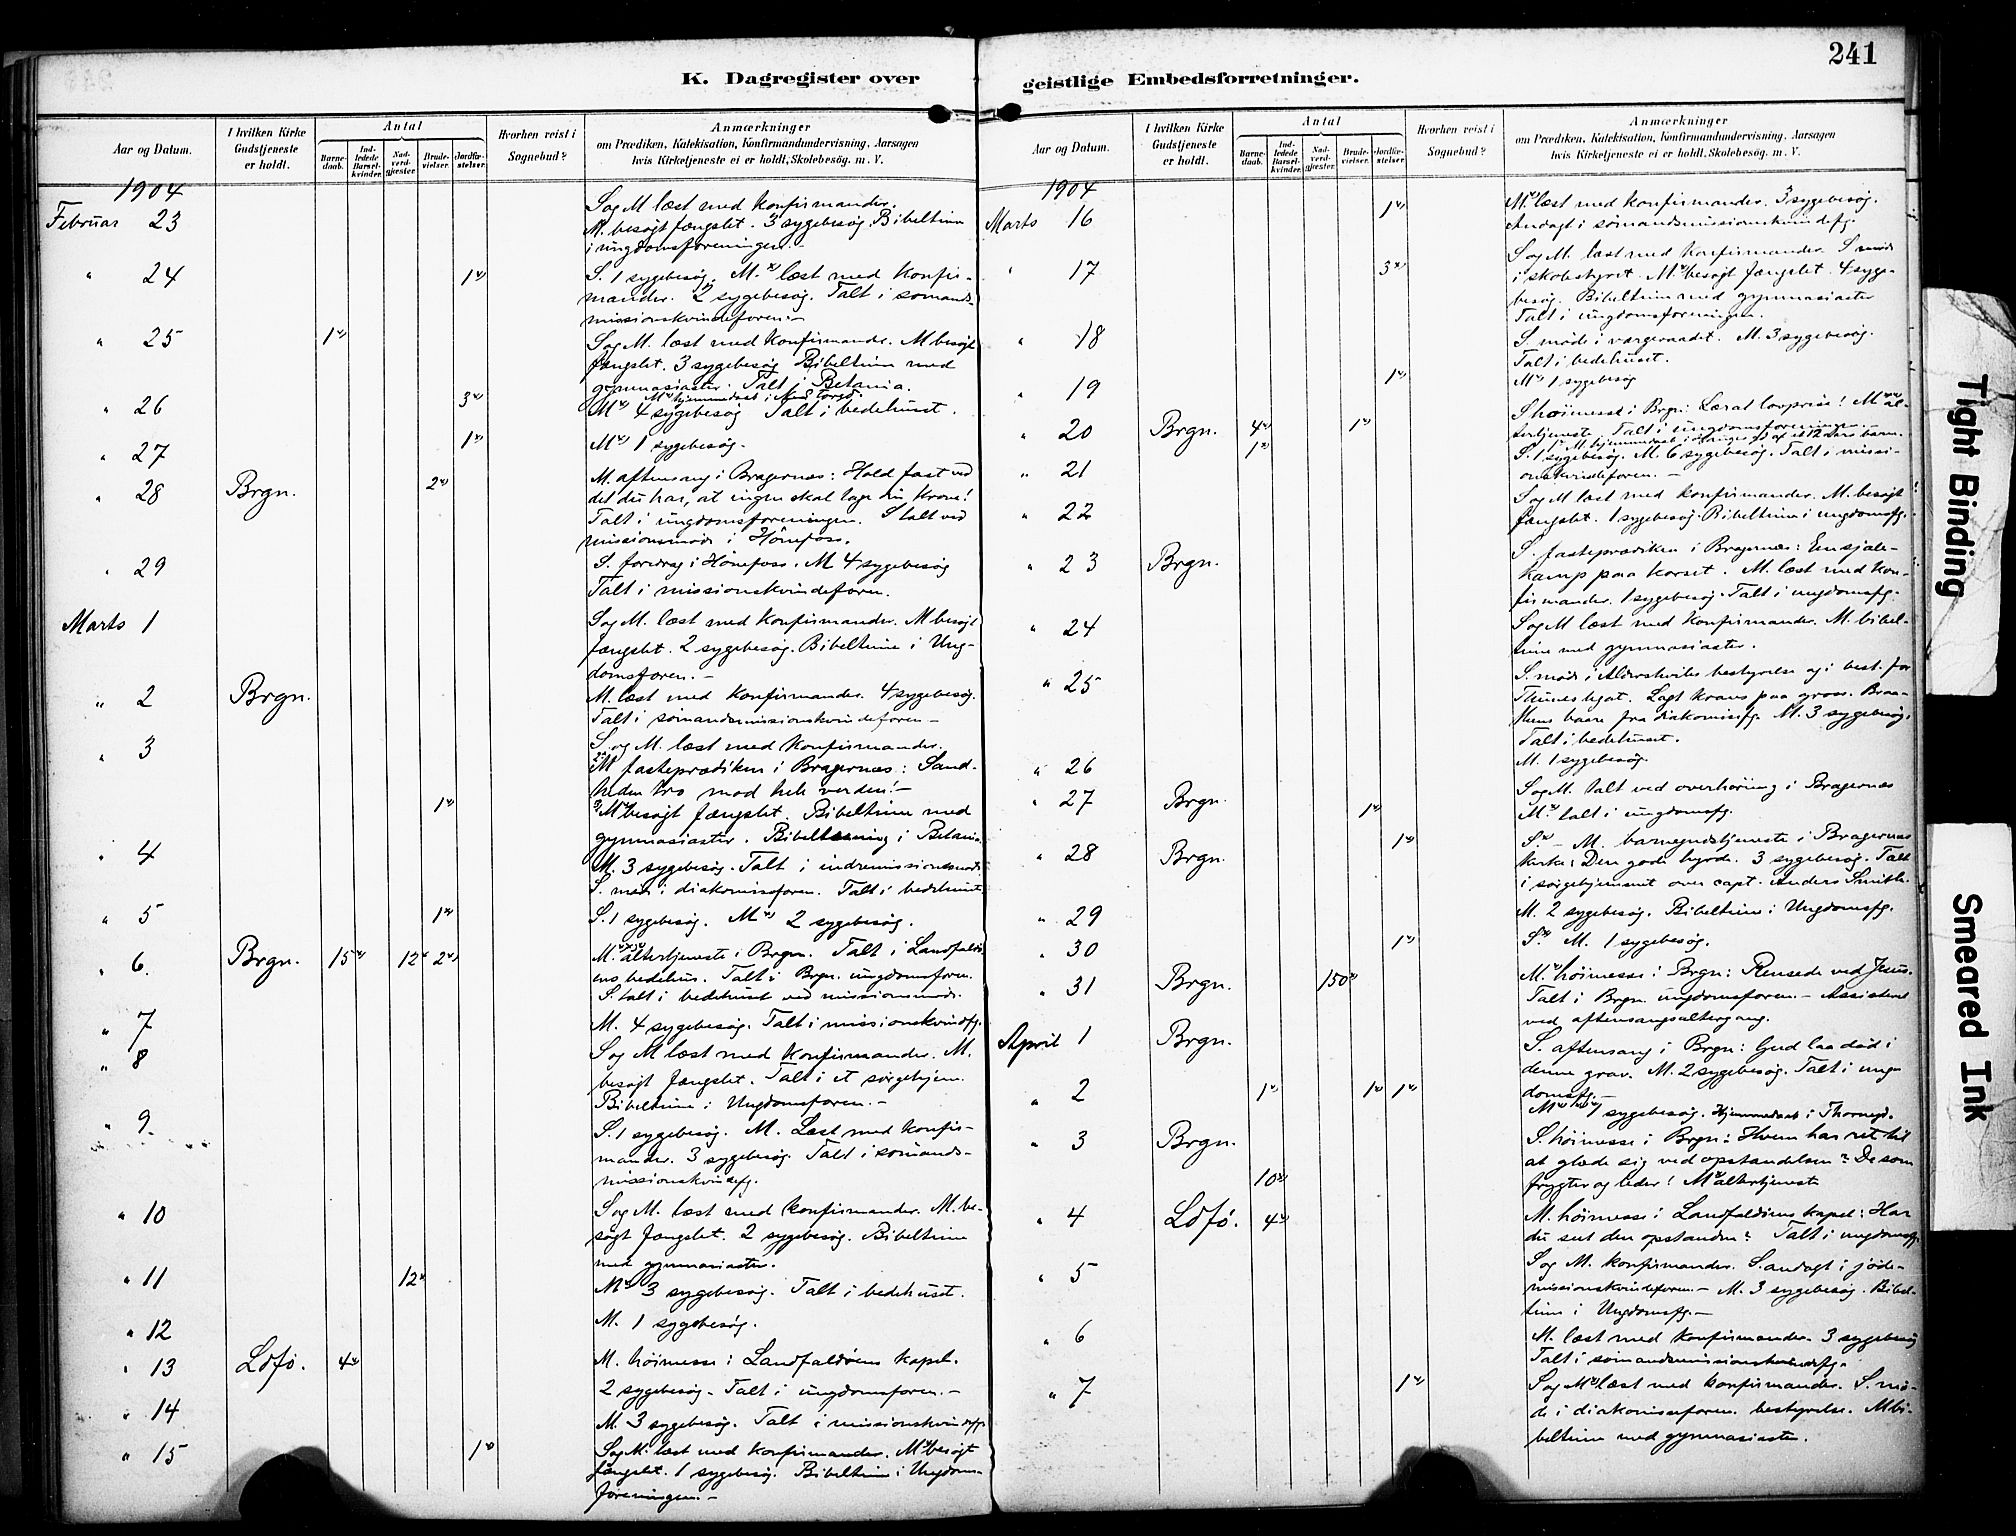 241
K. Dagregister over
geistlige Embedsforretninger.
Aar og Datum.
I hvilken Kirke Gudstjeneste er holdt.
Antal
Barnedaab.
Indledede Barselkvinder.
Nadverdgjester.
Brudevielser.
Jordfæstelser.
Hvorhen reist i Sognebud?
Anmærkninger
om Prædiken, Katekisation, Konfirmandundervisning, Aarsagen
hvis Kirketjeneste ei er holdt, Skolebesög. m. V.
1904
Februar 23
S og M læst med konfirmander.
M. besøgt fængslet. 3 sygebesøg. Bibeltime
i ungdomsforeningen.-
" 24 1
S. 1 sygebesøg. M. læst med konfir-
mander. 2 sygebesøg. Talt i sømands-
missionskvindeforen.-
" 25 1
S og M. læst med konfirmander. M besøgt
fængslet. 3 sygebesøg Bibeltime med
gymnasiaster. Talt i Betania.
" 26 3
M 4 sygebesøg Talt i bedehuset.
" 27 1
M 1 sygebesøg.
" 28 Brgn. 2
M. aftensang i Bragernæs: Hold fast ved
det du har, at ingen skal tage din krone!
Talt i ungdomsforeningen. S talt ved
missionsmøde i Hönefoss.
" 29
S. foredrag i Hönefoss. M 4 sygebesøg
Talt i missionskvindeforen.
Marts 1
S og M. læst med konfirmander. M besøgt
fængslet. 2 sygebesøg. Bibeltime i Ung-
domsforen.-
" 2 Brgn.
M. læst med konfirmander. 4 sygebesøg.
Talt i sømandsmissionskvindeforen-
" 3
S. og M. læst med konfirmander.
M fasteprædiken i Bragernæs: Sand-
heden tro mod hele verden!-
1
M besøgt fængslet. Bibeltime med
gymnasiaster. Bibellæsning i Betania
" 4
M. 3 sygebesøg. Talt i indremissionsmøde
S. møde i diakonisseforen. Talt i bedehuset
" 5 1
S. 1 sygebesøg. M 2 sygebesøg.
" 6. Brgn. 15 12 2
M. altertjeneste i Brgn. Talt i Landfaldø-
ens bedehus. Talt i Brgn. ungdomsforen.
S. talt i bedehuset ved missionsmøde.
" 7
M. 4 sygebesøg. Talt i missionskvindefg.
" 8
S og M læst med konfirmander. M.
besøgt fængslet. Talt i et sørgehjem.
Bibeltime i Ungdomsforen.-
" 9
S. 1 sygebesøg. M. Læst med konfir-
mander. 3 sygebesøg. Talt i sømands-
missionskvindefg.
" 10
S og M. læst med konfirmander. M. be-
søgt fængslet. 2 sygebesøg. Bibeltime
med gymnasiaster.
" 11 12
M 3 sygebesøg. Talt i bedehuset.
" 12
M. 1 sygebesøg.
" 13 Ldfø. 4
M. høimesse i Landfaldøens kapel.
2 sygebesøg. Talt i ungdomsforen.-
" 14
M. 3 sygebesøg. Talt i missionskvindefg.
" 15 1
S og M. læst med konfirmander. M besøgt
fængslet. 1 sygebesøg. Bibeltime i Ungdoms-
foreningen.-
Aar og Datum.
I hvilken Kirke Gudstjeneste er holdt.
Antal
Barnedaab.
Indledede Barselkvinder.
Nadverdgjester.
Brudevielser.
Jordfæstelser.
Hvorhen reist i Sognebud?
Anmærkninger
om Prædiken, Katekisation, Konfirmandundervisning, Aarsagen
hvis Kirketjeneste ei er holdt, Skolebesög. m. V.
1904
Marts 16 1
M. læst med konfirmander. 3 sygebesøg.
Andagt i sømandsmissionskvindefg.
" 17 3
S og M. læst med konfirmander. S møde
i skolestyret. M. besøgt fængslet. 4 syge-
besøg. Bibeltime med gymnasiaster
Talt i ungdomsforeningen.
" 18
S. møde i værgeraadet. M. 3 sygebesøg.
Talt i bedehuset.
" 19 1
M 1 sygebesøg
" 20 Brgn. 4 1
1
S høimesse i Brgn: Lær at lovprise! M al-
tertjeneste. Talt i ungdomsforeningen.
" 21
S. 1 sygebesøg. M. 6 sygebesøg. Talt i missi-
onskvindeforen.-
" 22
S og M læst med konfirmander. M. besøgt
fængslet. 1 sygebesøg. Bibeltime i ungdomsfg.
" 23 Brgn.
S. fasteprædiken i Bragernæs: En sjæle-
kamp paa korset. M. læst med kon-
firmander. 1 sygebesøg. Talt i ungdomsfg.
" 24
S og M læst med konfirmander. M. bibel-
time med gymnasiaster.
" 25
S. møde i Aldershviles bestyrelse og i best. for
Thunes legat. Lagt krans paa gross.
baare fra diakonissefg. M. 3 sygebesøg.
Talt i bedehuset.
" 26
M. 1 sygebesøg.
" 27 Brgn. 1
S og M. talt ved overhøring i Bragernæs
M. talt i ungdomsfg.
" 28 Brgn. 1
S. - M. barnegudstjeneste i Bragernæs
kirke: Den gode hyrde. 3 sygebesøg. Talt
i sørgehjemmet over capt. Anders Smith.
" 29
M. 2 sygebesøg. Bibeltime i Ungdomsfg.
" 30 1
S. M. 1 sygebesøg.
" 31 Brgn. 150
M. høimesse i Brgn: Rensede ved Jesus.
Talt i Brgn. ungdomsforen.- Assisteret
ved aftensangsaltergang.
April 1 Brgn.
S. aftensang i Brgn: Gud laa død i
denne grav. M. 2 sygebesøg. Talt i ung-
domsfg.-
" 2 1 1 1
M sygebesøg. Hjemmedaab i
" 3 Brgn.
10
S. høimesse i Brgn: Hvem har ret til
at glæde sig ved opstandelsen? De som
frygter og leder! M altertjeneste
" 4 Ldfø. 4
M. høimesse i Landfaldøens kapel: Har
du set den opstandne? Talt i ungdomsfg.
" 5
S og M. konfirmander. S. andagt i jøde-
missionskvindeforen.- M. 3 sygebesøg. Bibel-
time i Ungdomsfg.-
" 6
M. læst med konfirmander. 3 sygebesøg
Talt i sømandsmissionskvindefg.
" 7 1
S og M læst med konfirmander. S. mø-
de i diakonisseforen. bestyrelse. M bi-
beltime med gymnasiaster.
Tight Binding
Smeared Ink